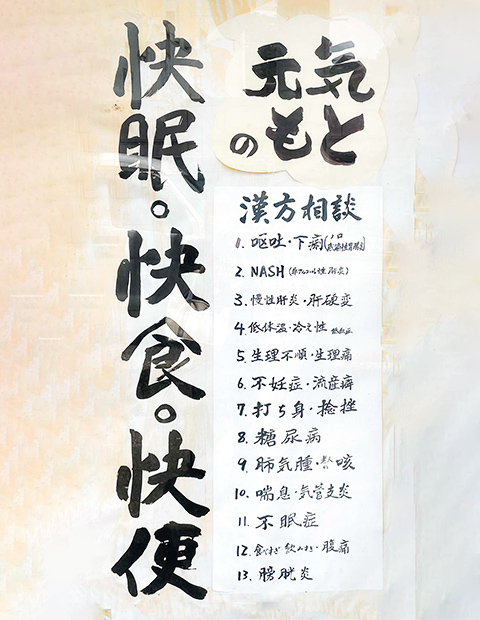 元気
のもと
快眠。快食。快便
漢方相談
1. 嘔吐・下痢(ノロ 感染性胃腸炎)
2. NASH(非アルコール性肝炎)
3. 慢性肝炎・肝硬変
4. 低体温・冷え性 低血圧
5. 生理不順・生理痛
6. 不妊症・流産癖
7. 打ち身・捻挫
8. 糖尿病
9. 肺気腫・咳
10. 喘息・気管支炎
11. 不眠症
12. 食べすぎ 飲みすぎ・腹痛
13. 膀胱炎